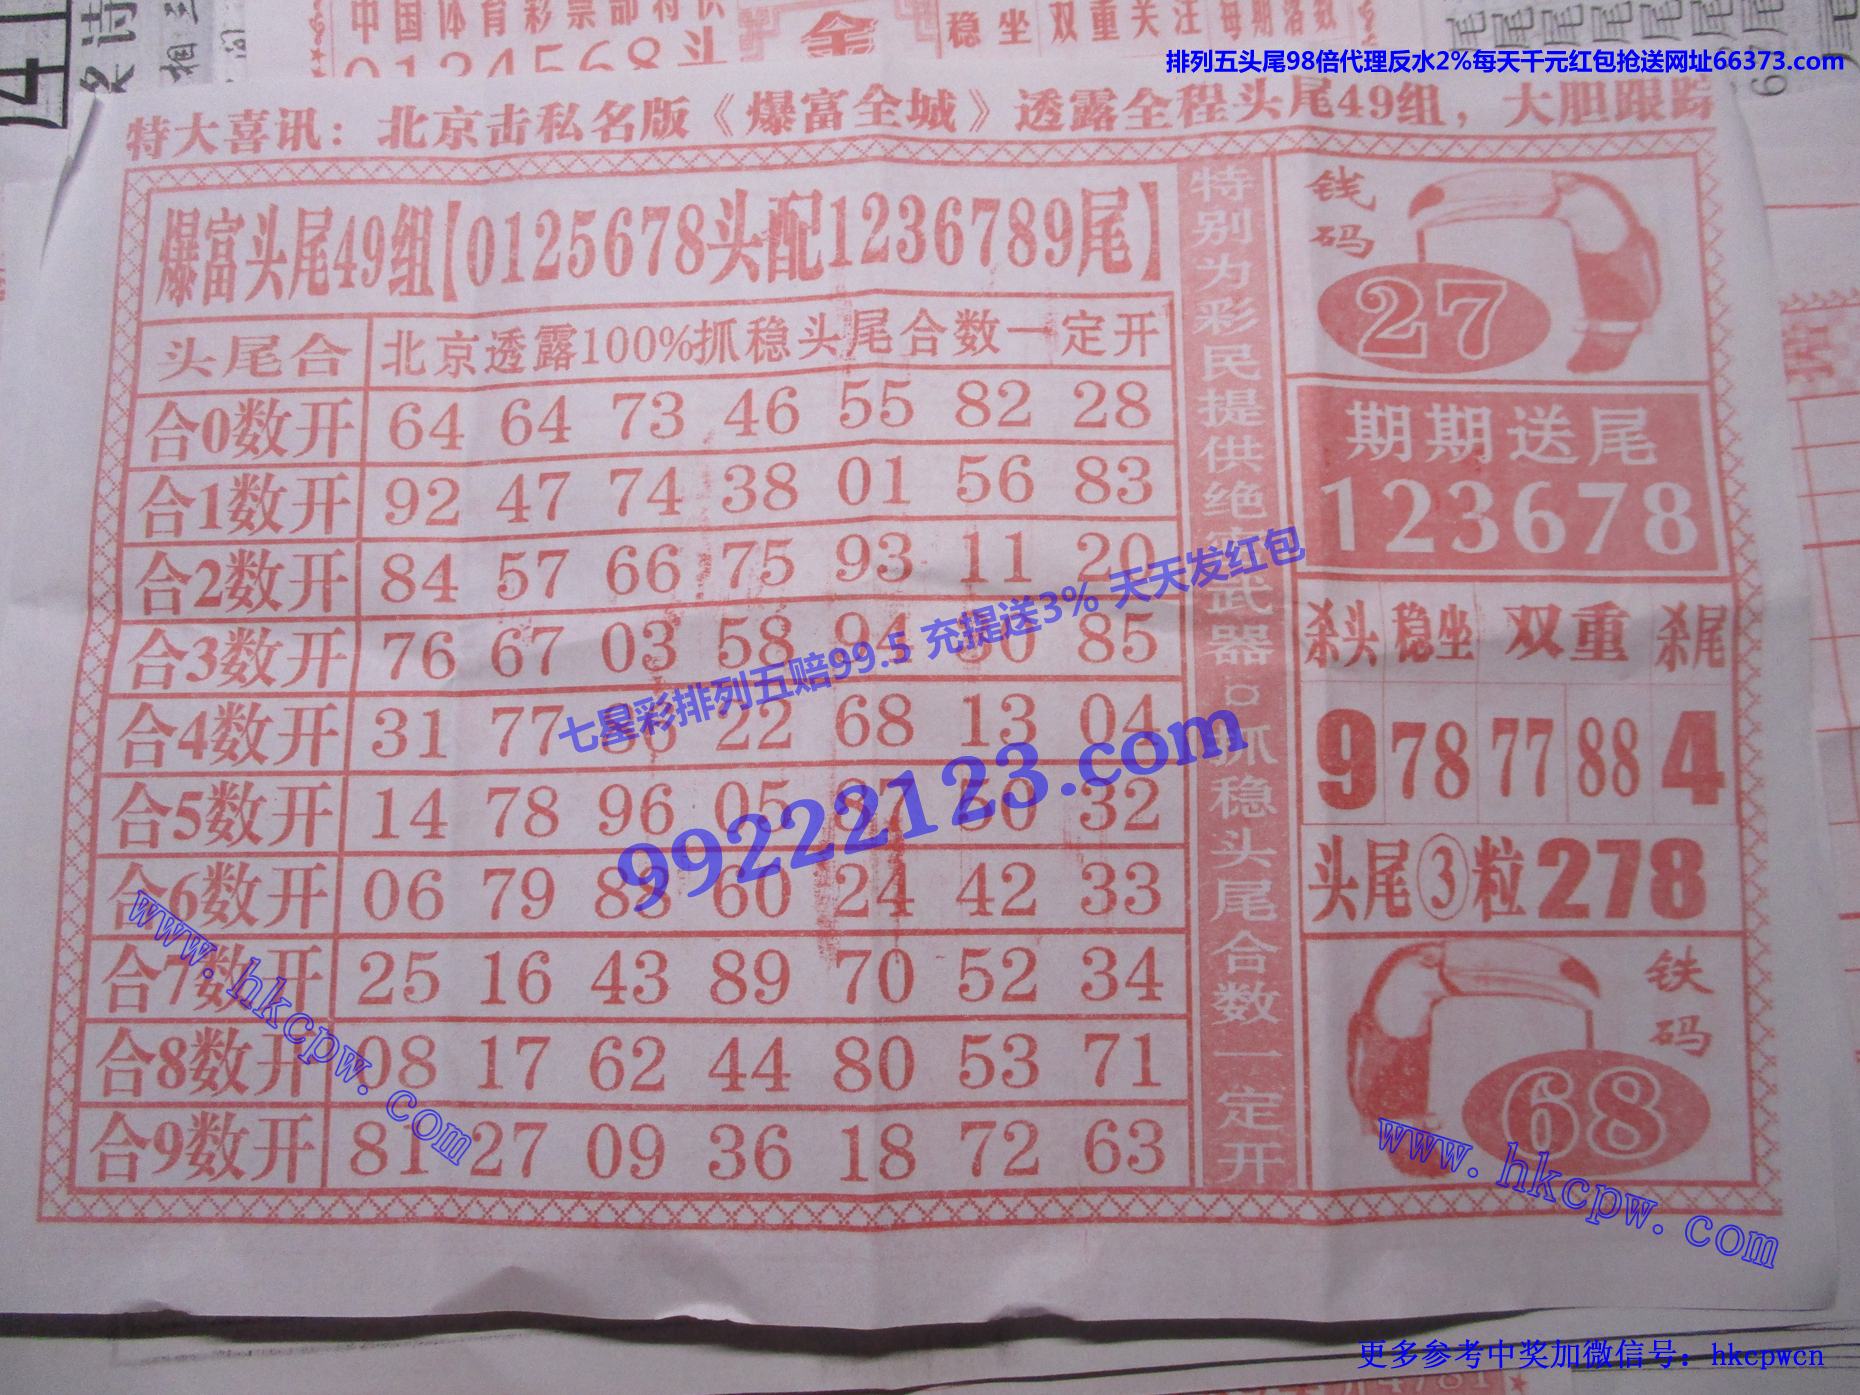 中国体育彩票部特供
0124568头
稳坐 双重 关注 每期落数
排列五头尾98倍代理反水2%每天千元红包抢送网址66373.com
特大喜讯：北京击私名版《爆富全城》透露全程头尾49组，大胆跟踪
爆富头尾49组【0125678头配1236789尾】
头尾合 北京透露100%抓稳头尾合数一定开
合0数开 64 64 73 46 55 82 28
合1数开 92 47 74 38 01 56 83
合2数开 84 57 66 75 93 11 20
合3数开 76 67 03 58 94 30 85
合4数开 31 77 86 22 68 13 04
合5数开 14 78 96 05 87 50 32
合6数开 06 79 88 60 24 42 33
合7数开 25 16 43 89 70 52 34
合8数开 08 17 62 44 80 53 71
合9数开 81 27 09 36 18 72 63
特别为彩民提供绝密武器¤抓稳头尾合数一定开
钱码
27
期期送尾
123678
杀头 稳坐 双重 杀尾
9 78 77 88 4
头尾③粒278
铁码
68
七星彩排列五赔99.5 充提送3% 天天发红包
99222123.com
www.hkcpw.com
www.hkcpw.com
更多参考中奖加微信号：hkcpwcn